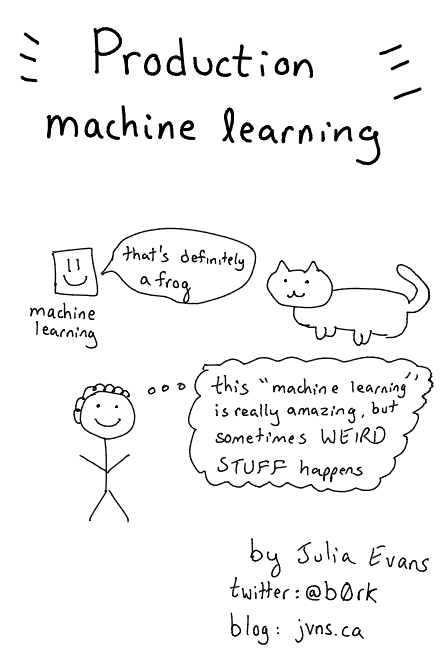 Production
machine learning
that's definitely
a frog
machine
learning
this "machine learning"
is really amazing, but
sometimes WEIRD
STUFF happens
by Julia Evans
twitter: @b0rk
blog: jvns.ca